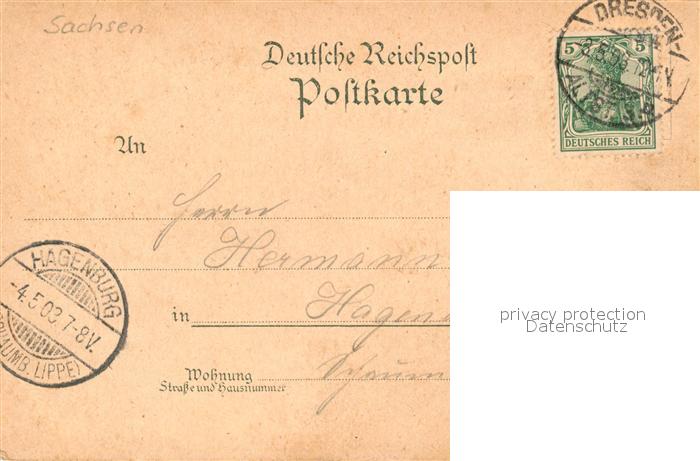 Sachsen
Deutsche Reichspost
Postkarte
DRESDEN-
5 5
DEUTSCHES REICH
An
Herrn
Hermann
HAGENBURG
-4.5.03.7-8V.
LIPPE)
in Hagen
Wohnung
Straße und Hausnummer
Schaum
privacy protection
Datenschutz